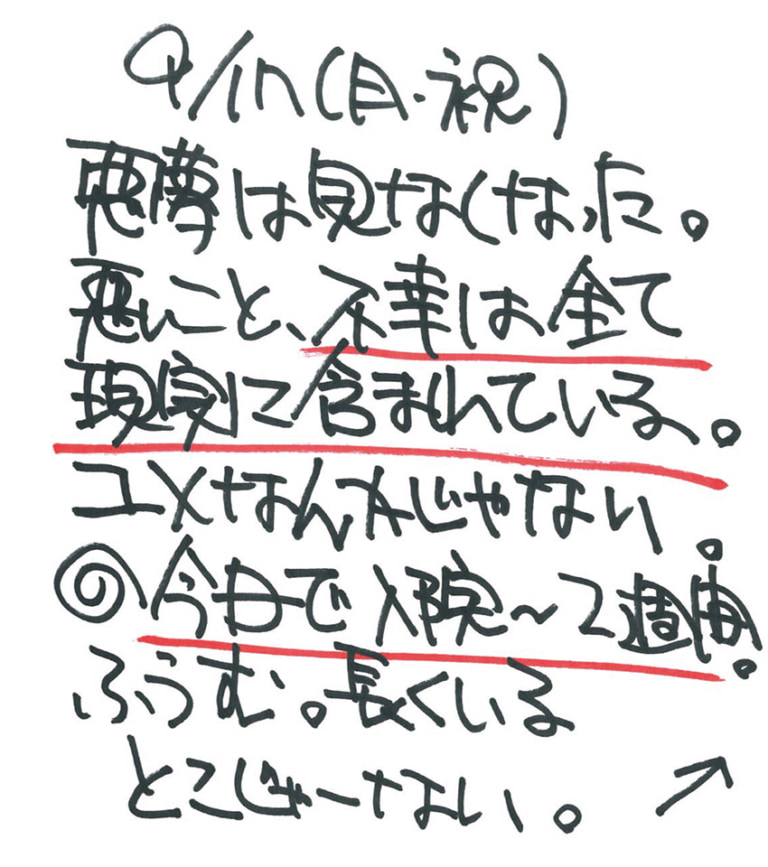 9/17(月・祝)
悪夢は見なくなった。
悪いこと、不幸は全て
現実に含まれている。
ユメなんかじゃない。
◎今日で入院～2週間。
ふうむ。長くいる
とこじゃーない。↗